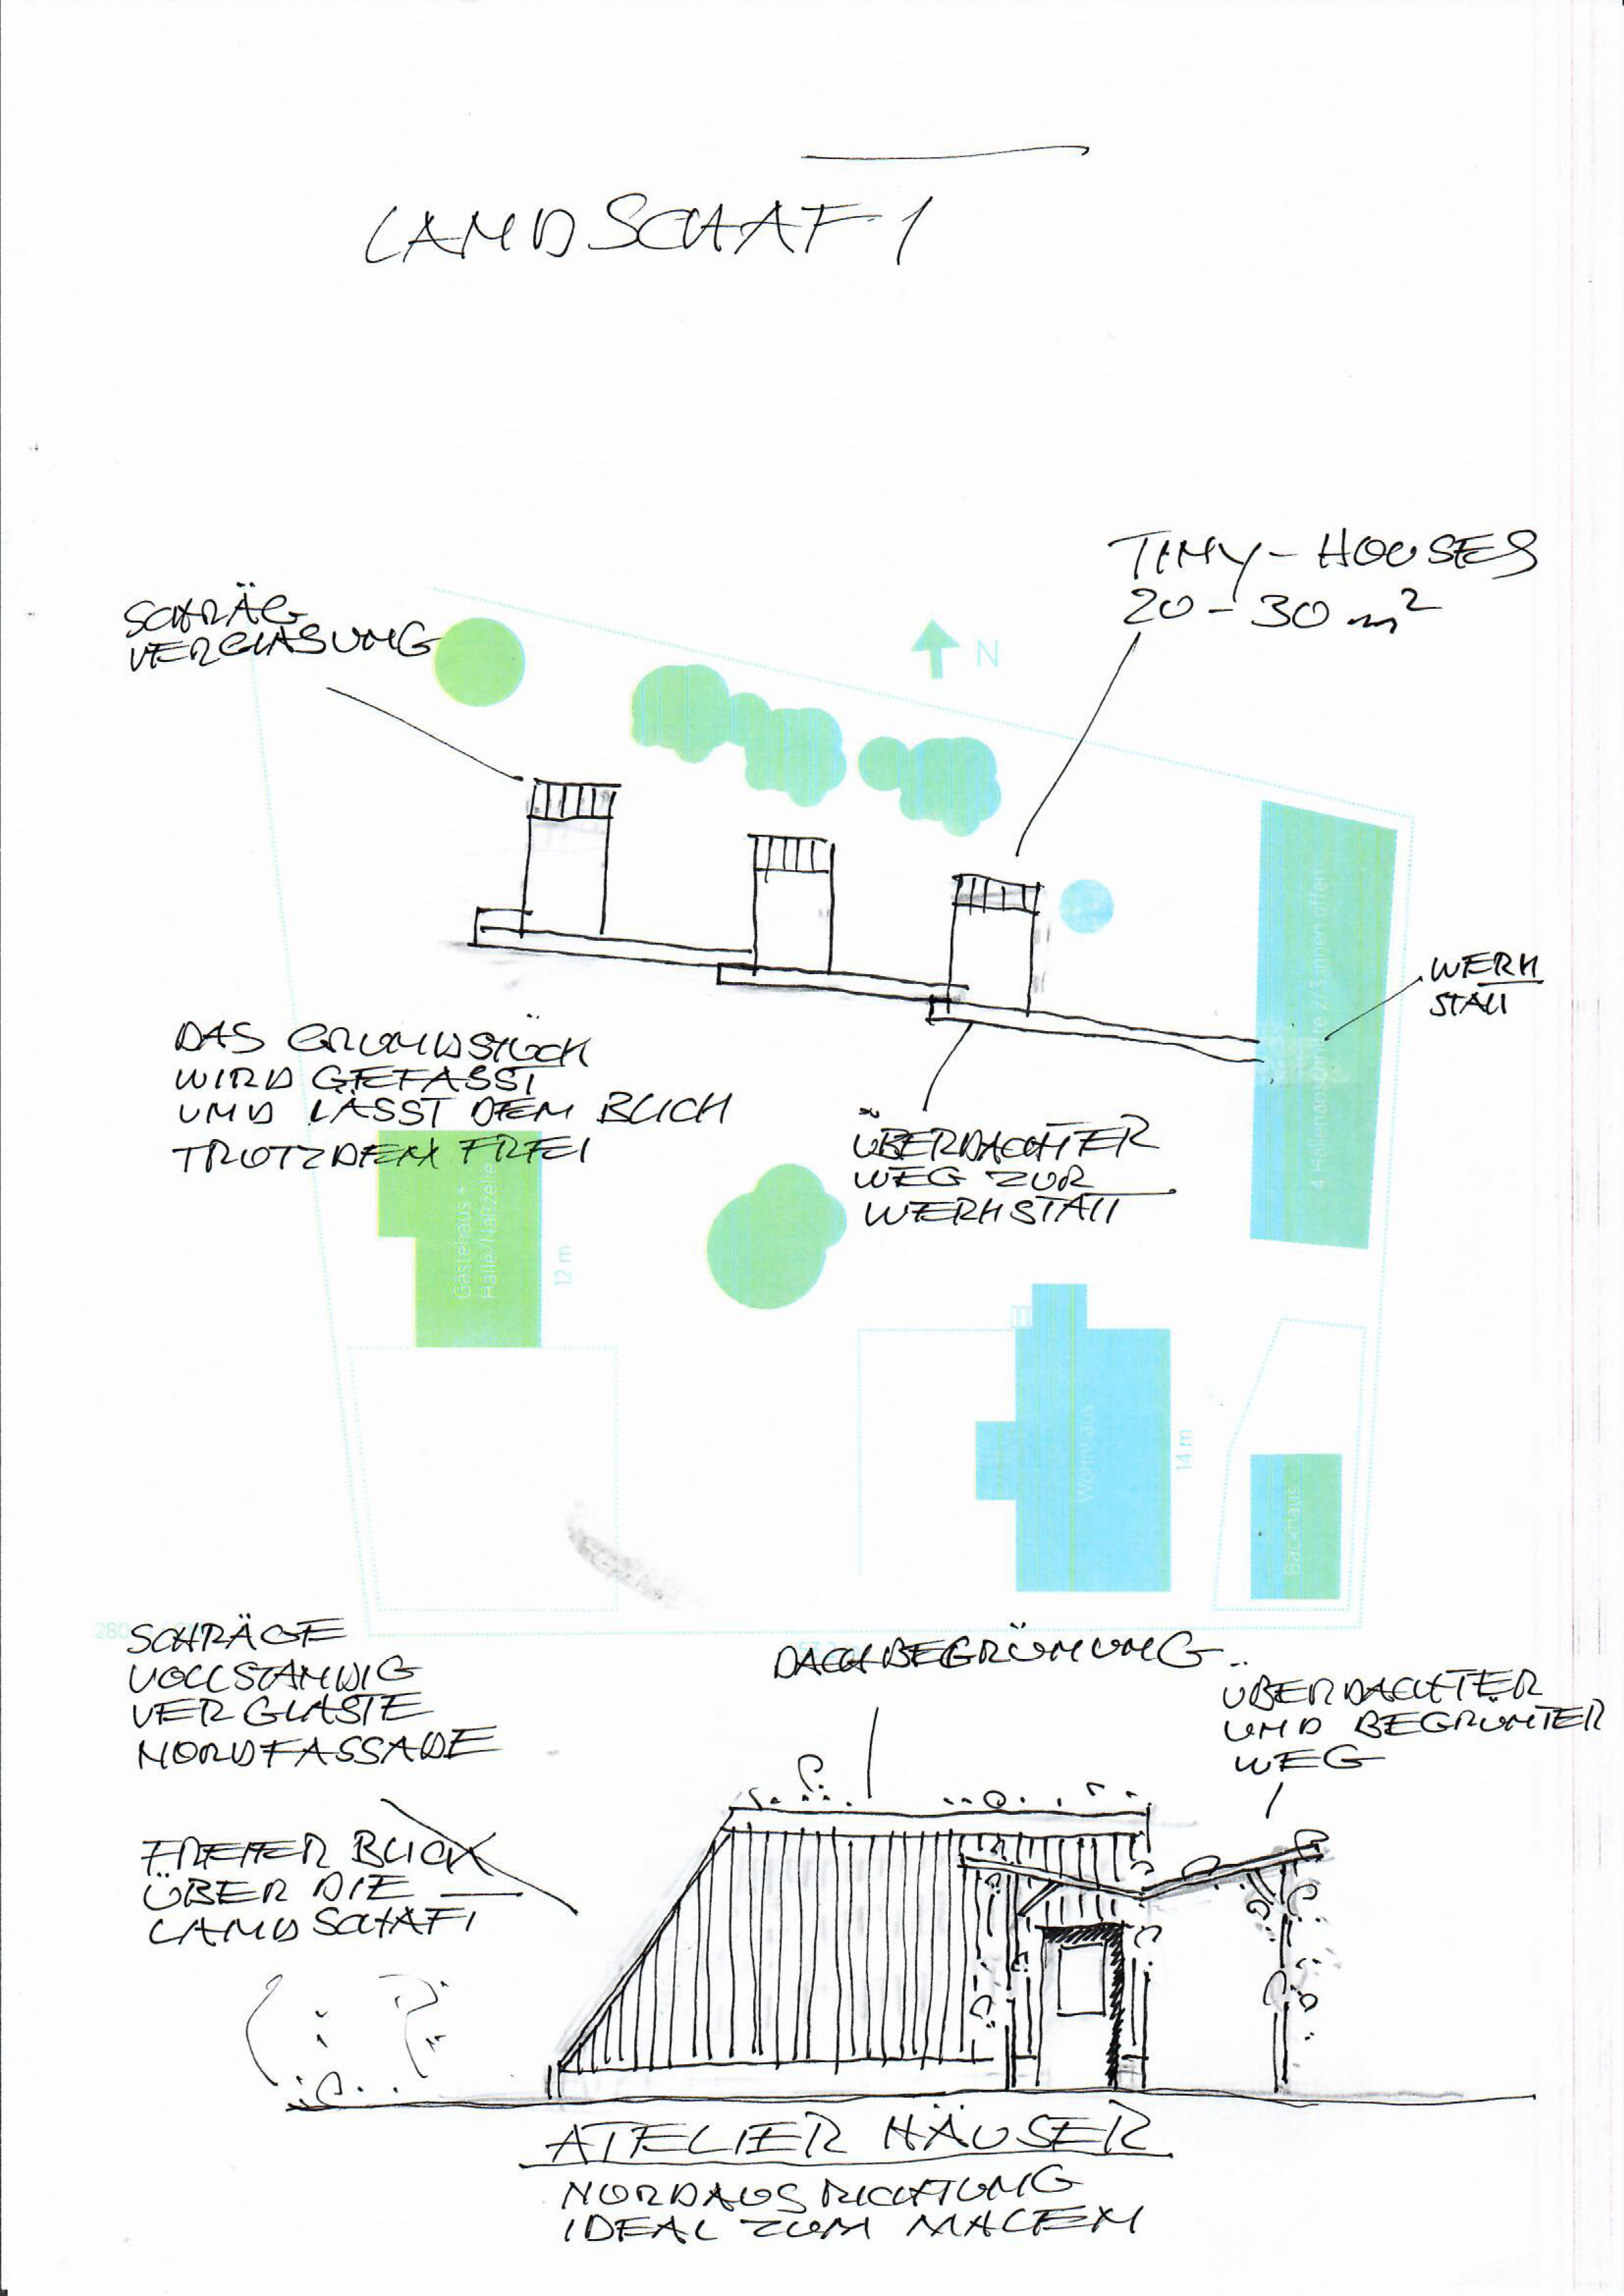 LANDSCHAFT
TINY-HOUSES
20 - 30 m²
SCHRÄG
VERGLASUNG
N
4 Hallenabschnitte 2/3 innen offen
WERK
STATT
DAS GRUNDSTÜCK
WIRD GEFASST
UND LÄSST DEM BLICK
TROTZDEM FREI
ÜBERDACHTER
WEG ZUR
WERKSTATT
Gästehaus +
Halle/Naßzelle
12 m
Wohnhaus
14 m
Backhaus
SCHRÄGE
VOLLSTÄNDIG
VERGLASTE
NORDFASSADE
DACHBEGRÜNUNG
ÜBERDACHTER
UND BEGRÜNTER
WEG
FREIER BLICK
ÜBER DIE
LANDSCHAFT
ATELIER HÄUSER
NORDAUSRICHTUNG
IDEAL ZUM MALEN